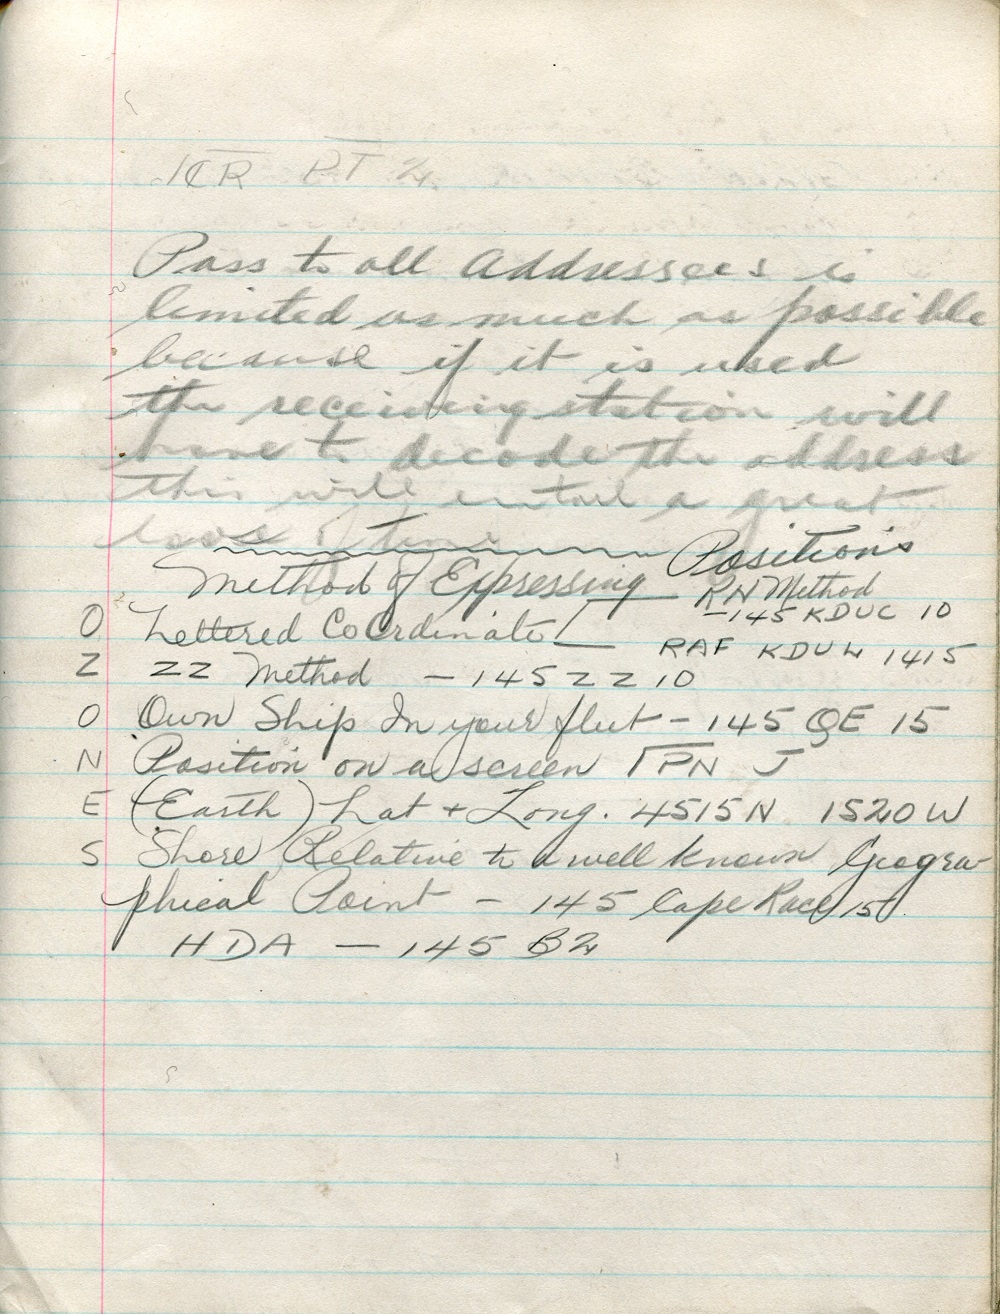 ICR PT 2.
Pass to all Addressees is
limited as much as possible
because if it is used
the receiving station will
have to decode the address
this will entail a great
loss of time
Method of Expressing Positions
RN Method
O Lettered CoOrdinate —145 KDUC 10
RAF KDUW 1415
Z ZZ Method — 145 ZZ 10
O Own Ship In your fleet — 145 QE 15
N Position on a screen PN J
E (Earth) Lat + Long. 4515N 1520W
S Shore Relative to a well known Geogra-
phical Point — 145 Cape Race 15
HDA — 145 B2